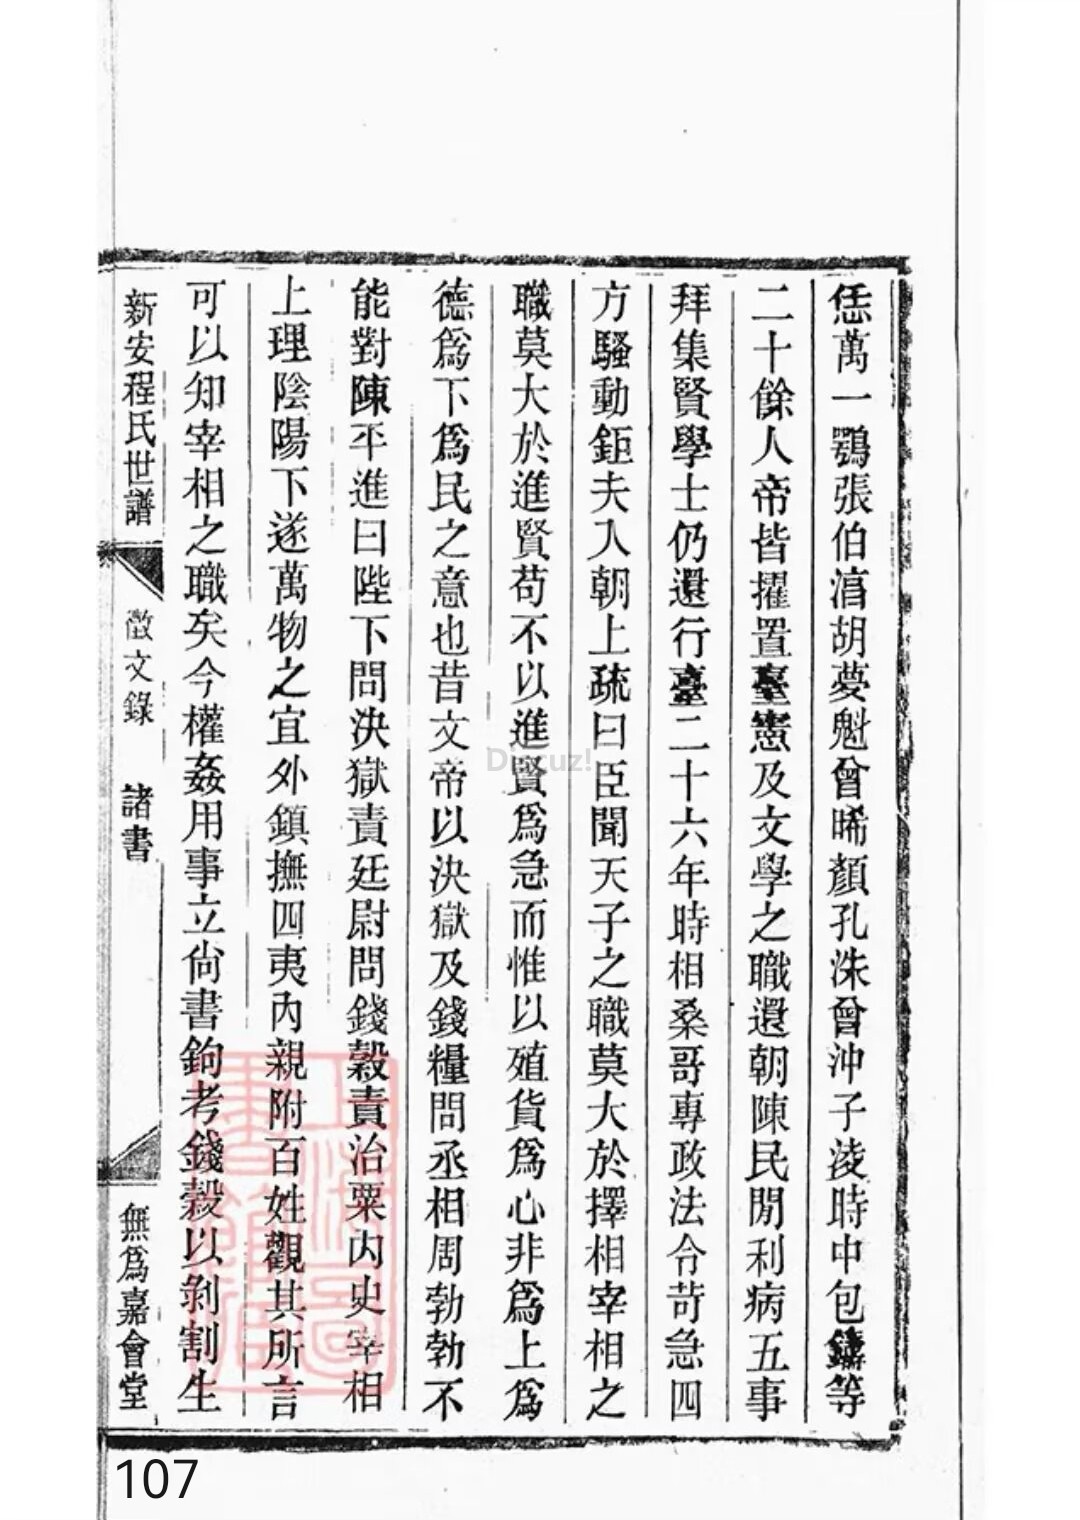 恁萬一鶚張伯淯胡夢魁曾晞顏孔洙曾沖子淩時中包鑄等
二十餘人帝皆擢置臺憲及文學之職還朝陳民閒利病五事
拜集賢學士仍還行臺二十六年時相桑哥專政法令苛急四
方騷動鉅夫入朝上疏曰臣聞天子之職莫大於擇相宰相之
職莫大於進賢苟不以進賢爲急而惟以殖貨爲心非爲上爲
德爲下爲民之意也昔文帝以決獄及錢糧問丞相周勃勃不
能對陳平進曰陛下問決獄責廷尉問錢穀責治粟內史宰相
上理陰陽下遂萬物之宜外鎮撫四夷內親附百姓觀其所言
可以知宰相之職矣今權姦用事立尙書鉤考錢穀以剝割生
新安程氏世譜 徵文錄 諸書 無爲嘉會堂
上海圖書館藏
Discuz!
107